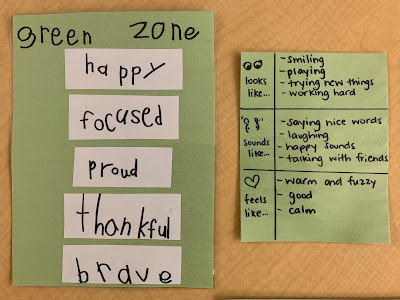 green zone
happy
focused
proud
thankful
brave
looks
like...
- smiling
- playing
- trying new things
- working hard
sounds
like...
- saying nice words
- laughing
- happy sounds
- talking with friends
feels
like...
- warm and fuzzy
- good
- calm